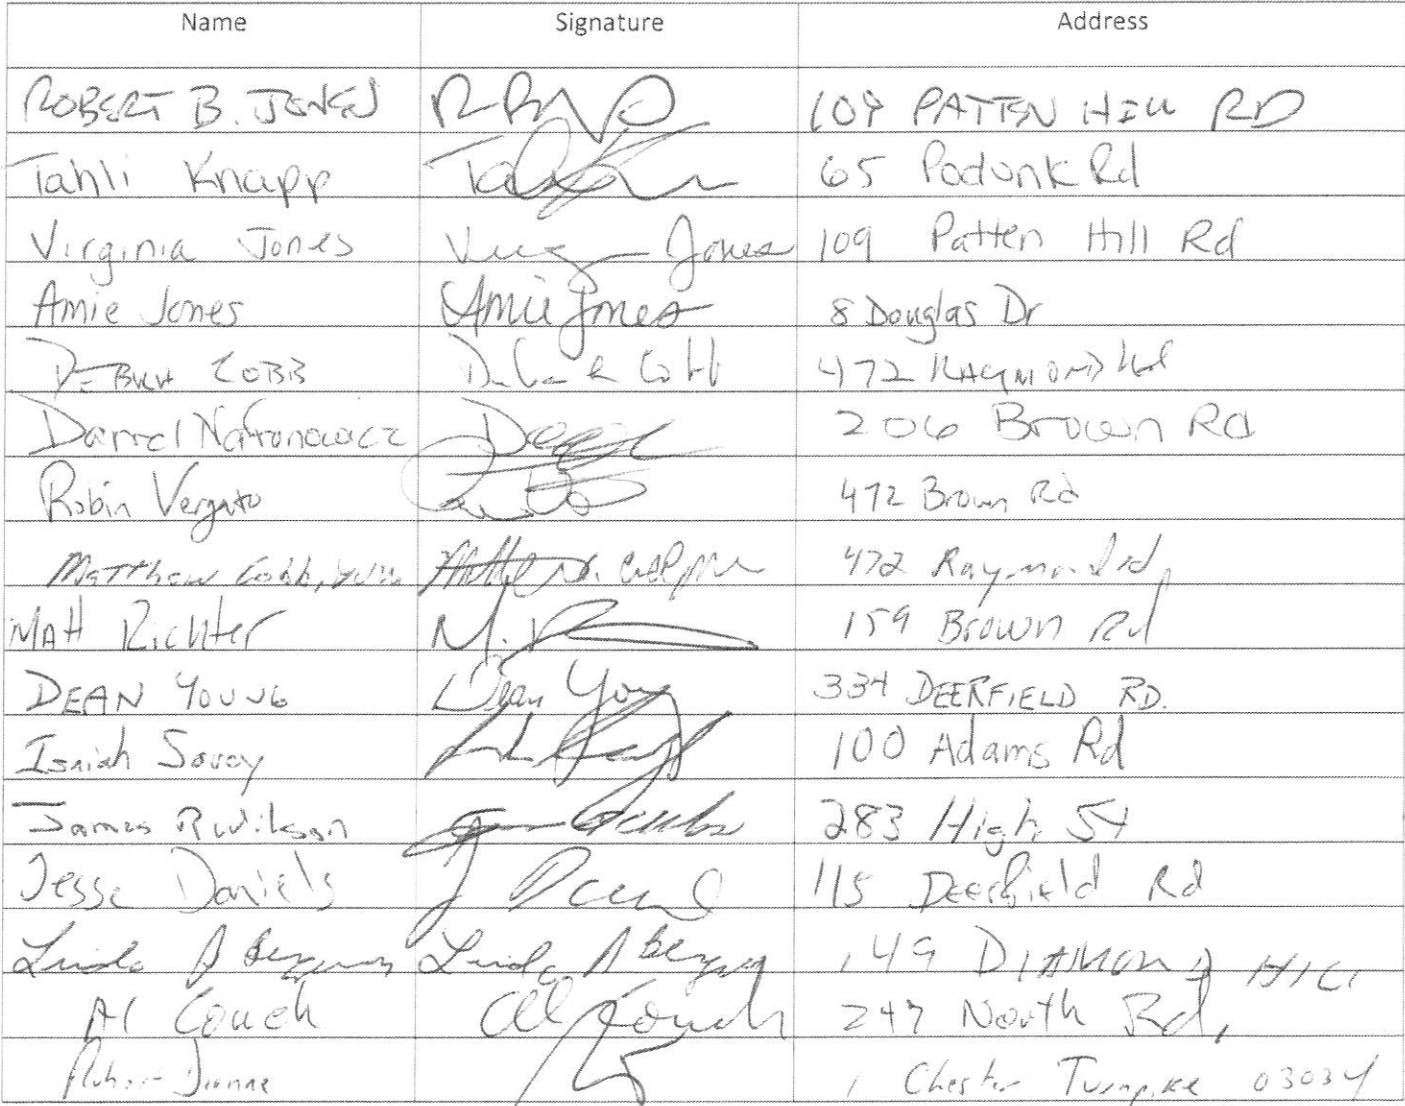 Name Signature Address
ROBERT B. JONES 109 PATTEN HILL RD
Tahli Knapp 65 Podunk Rd
Virginia Jones Jones 109 Patten Hill Rd
Amie Jones Amie Jones 8 Douglas Dr
COBB Cobb 472 RAYMOND Rd
Darrel 206 Brown Rd
Robin Vergato 472 Brown Rd
Matthew Cobb, 472 Raymond rd
MAtt Richter M. 159 Brown Rd
DEAN YOUNG Dean Young 334 DEERFIELD RD.
Isaiah Savoy 100 Adams Rd
James R Wilson 283 High St
Jesse Daniels J 115 Deerfield Rd
Linda A Linda A 49 DIAMOND HILL
Al Couch Al Couch 247 North Rd,
Chester Turnpike 03034